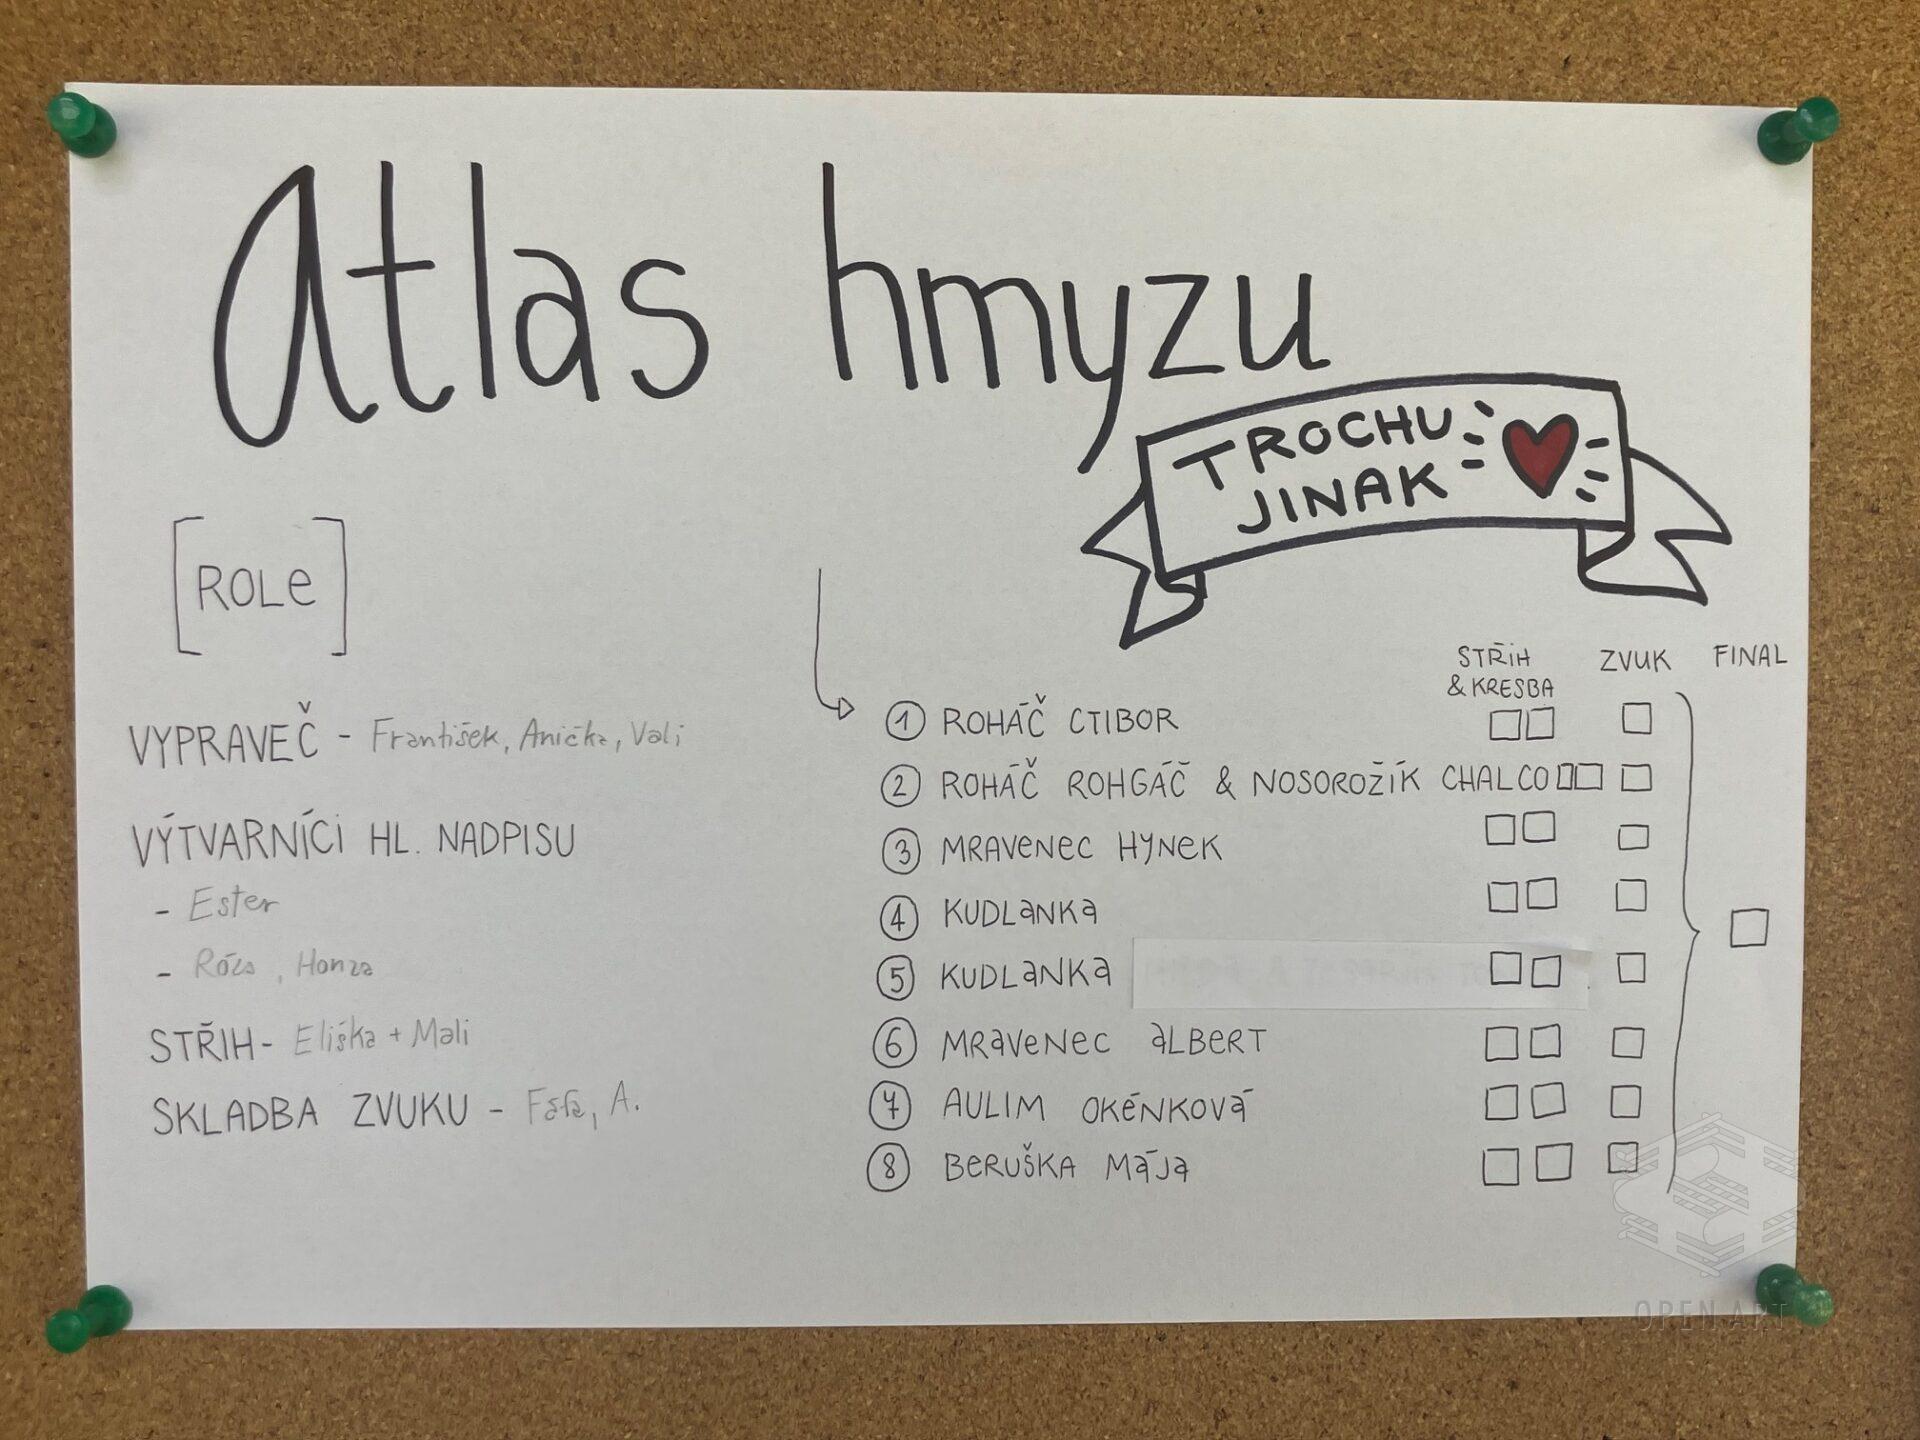 Atlas hmyzu
TROCHU
JINAK
[ROLE]
VYPRAVEČ - František, Anička, Vali
VÝTVARNÍCI HL. NADPISU
- Ester
- Róza, Honza
STŘIH - Eliška + Mali
SKLADBA ZVUKU - Fáfa, A.
STŘIH
& KRESBA
ZVUK
FINAL
1 ROHÁČ CTIBOR
2 ROHÁČ ROHGÁČ & NOSOROŽÍK CHALCO
3 MRAVENEC HYNEK
4 KUDLANKA
5 KUDLANKA
6 MRAVENEC ALBERT
7 AULIM OKÉNKOVÁ
8 BERUŠKA MÁJA
OPEN ART